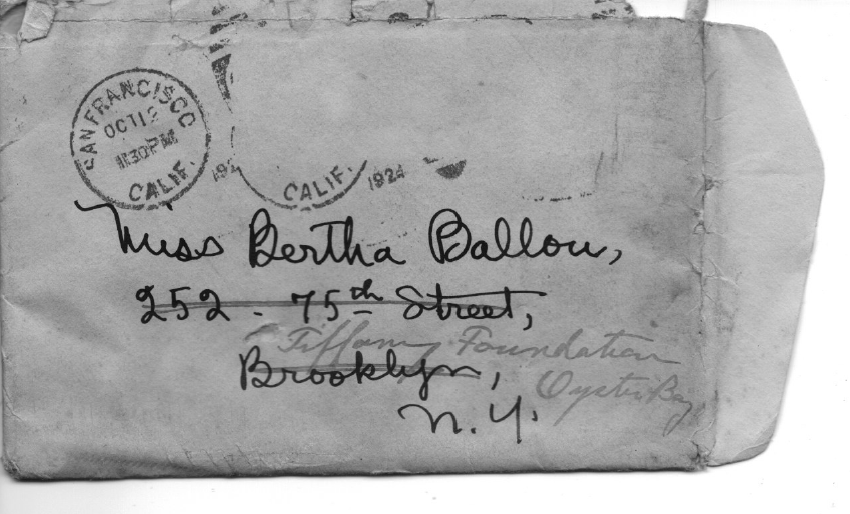 SAN FRANCISCO
OCT 12
11 30 PM
CALIF.
192
CALIF.
1924
Miss Bertha Ballou,
252 - 75th Street,
Tiffany Foundation
Brooklyn,
Oyster Bay
N.Y.